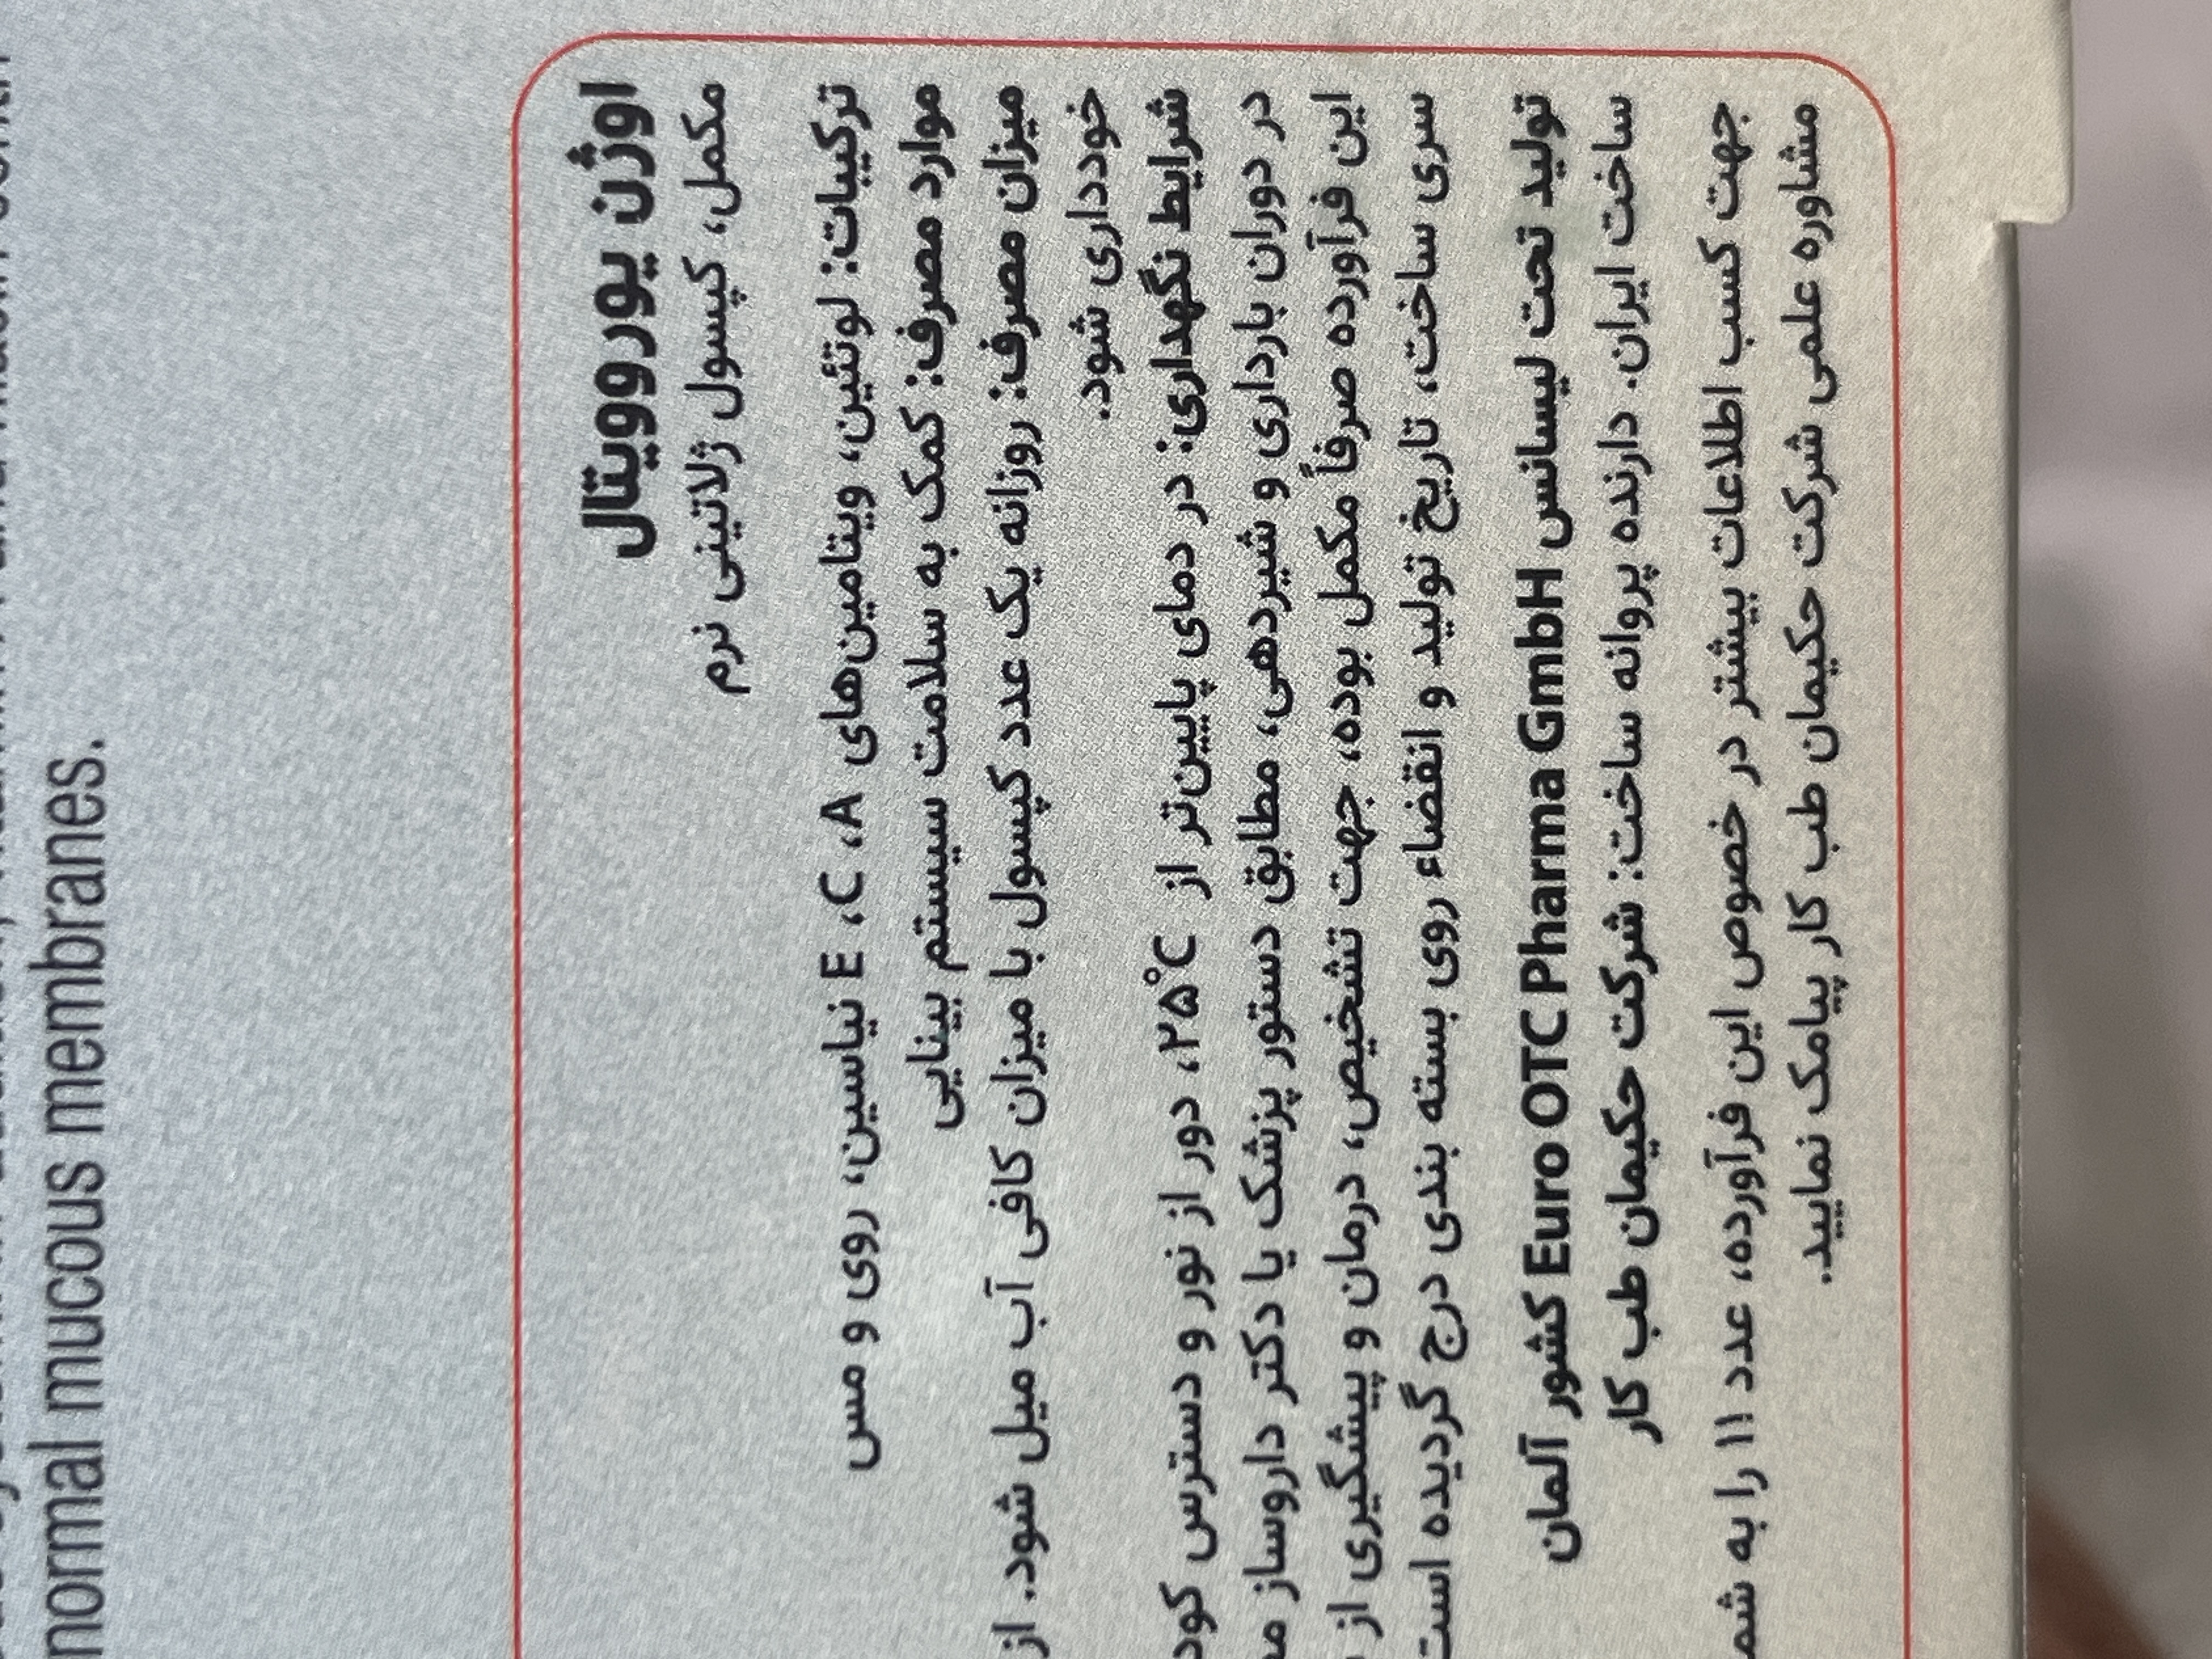 normal mucous membranes.
اوژن یوروویتال
مکمل، کپسول ژلاتینی نرم
ترکیبات: لوتئین، ویتامین‌های E ،C ،A نیاسین، روی و مس
موارد مصرف: کمک به سلامت سیستم بینایی
میزان مصرف: روزانه یک عدد کپسول با میزان کافی آب میل شود. از
خودداری شود.
شرایط نگهداری: در دمای پایین‌تر از ۲۵°C، دور از نور و دسترس
در دوران بارداری و شیردهی، مطابق دستور پزشک یا دکتر داروساز
این فرآورده صرفاً مکمل بوده، جهت تشخیص، درمان و پیشگیری از
سری ساخت، تاریخ تولید و انقضاء روی بسته بندی درج گردیده است
تولید تحت لیسانس Euro OTC Pharma GmbH کشور آلمان
ساخت ایران. دارنده پروانه ساخت: شرکت حکیمان طب کار
جهت کسب اطلاعات بیشتر در خصوص این فرآورده، عدد ۱۱ را به
مشاوره علمی شرکت حکیمان طب کار پیامک نمایید.